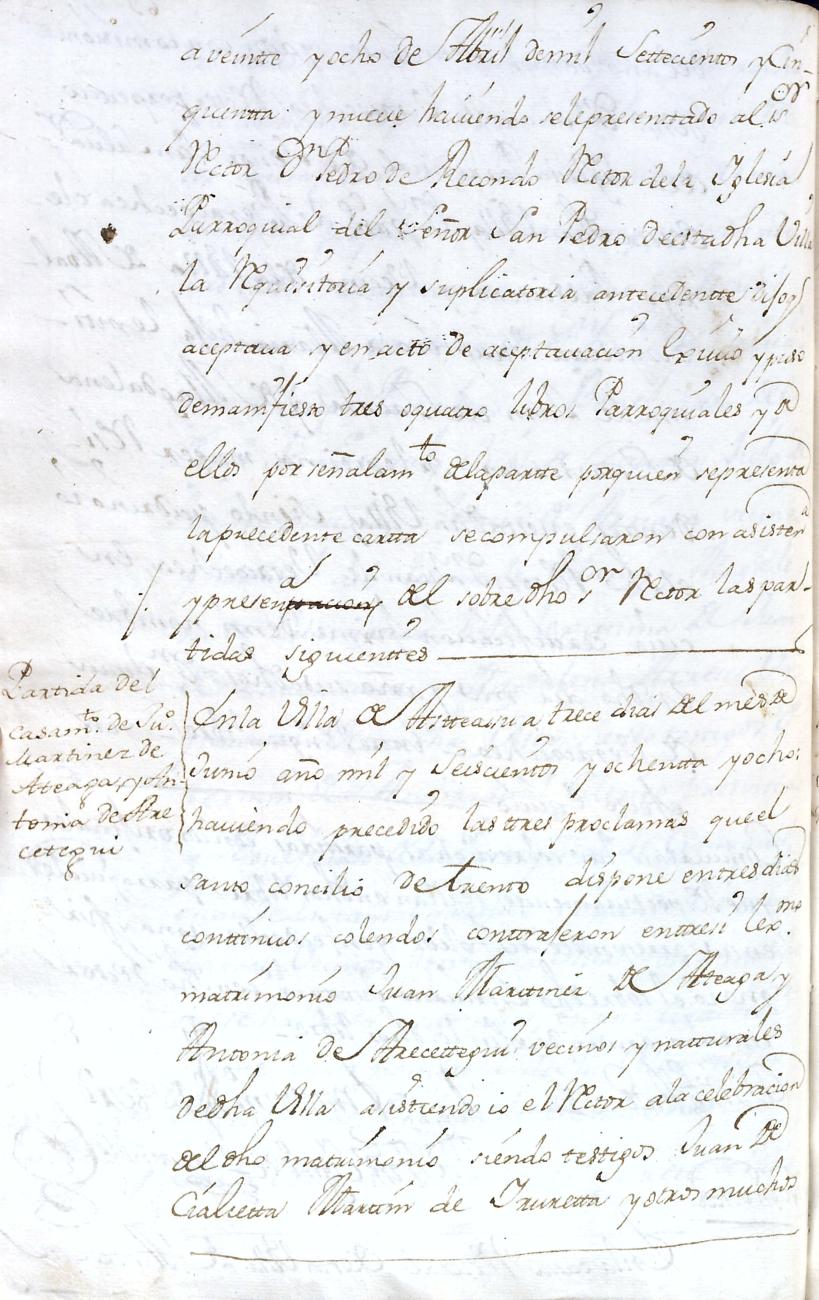 a veintte y ocho de Abril de mil Settecientos y Cin-
quentta y nueve haviendosele presenttado al S.or
Rector Dn Pedro de Recondo Rector de la Iglesia
Parroquial del Señor San Pedro de esta dha Villa
la Requisitoria y suplicatoria antecedentte dijo q
aceptava y en acto de aceptavacion Exivió y puso
de manifiesto tres o quatro libros Parroquiales y de
ellos por señalam.to de la partte por quien se presenta
la precedente cartta se compulsaron con asisten.a
y presen.a del sobre dho s.or Rector las par-
tidas siguienttes
Partida del
casam.to de Ju.o
Martinez de
Atteaga y An-
tonia de Are
cetegui
En la Villa de Astteasu a trece dias del mes de
Junio año mil y Seiscientos y ochentta y ocho
haviendo precedido las ttres proclamas que el
santo concilio de trento dispone en tres dias
conttinuos colendos conttrajeron enttresi lex.mo
matrimonio Juan Marttinez de Atteaga y
Antonia de Arecettegui vecinos y natturales
de dha Villa asisttiendo io el Rector a la celebracion
del dho matrimonio siendo testigos Juan de
Cialcetta Marttin de Iruretta y otros muchos